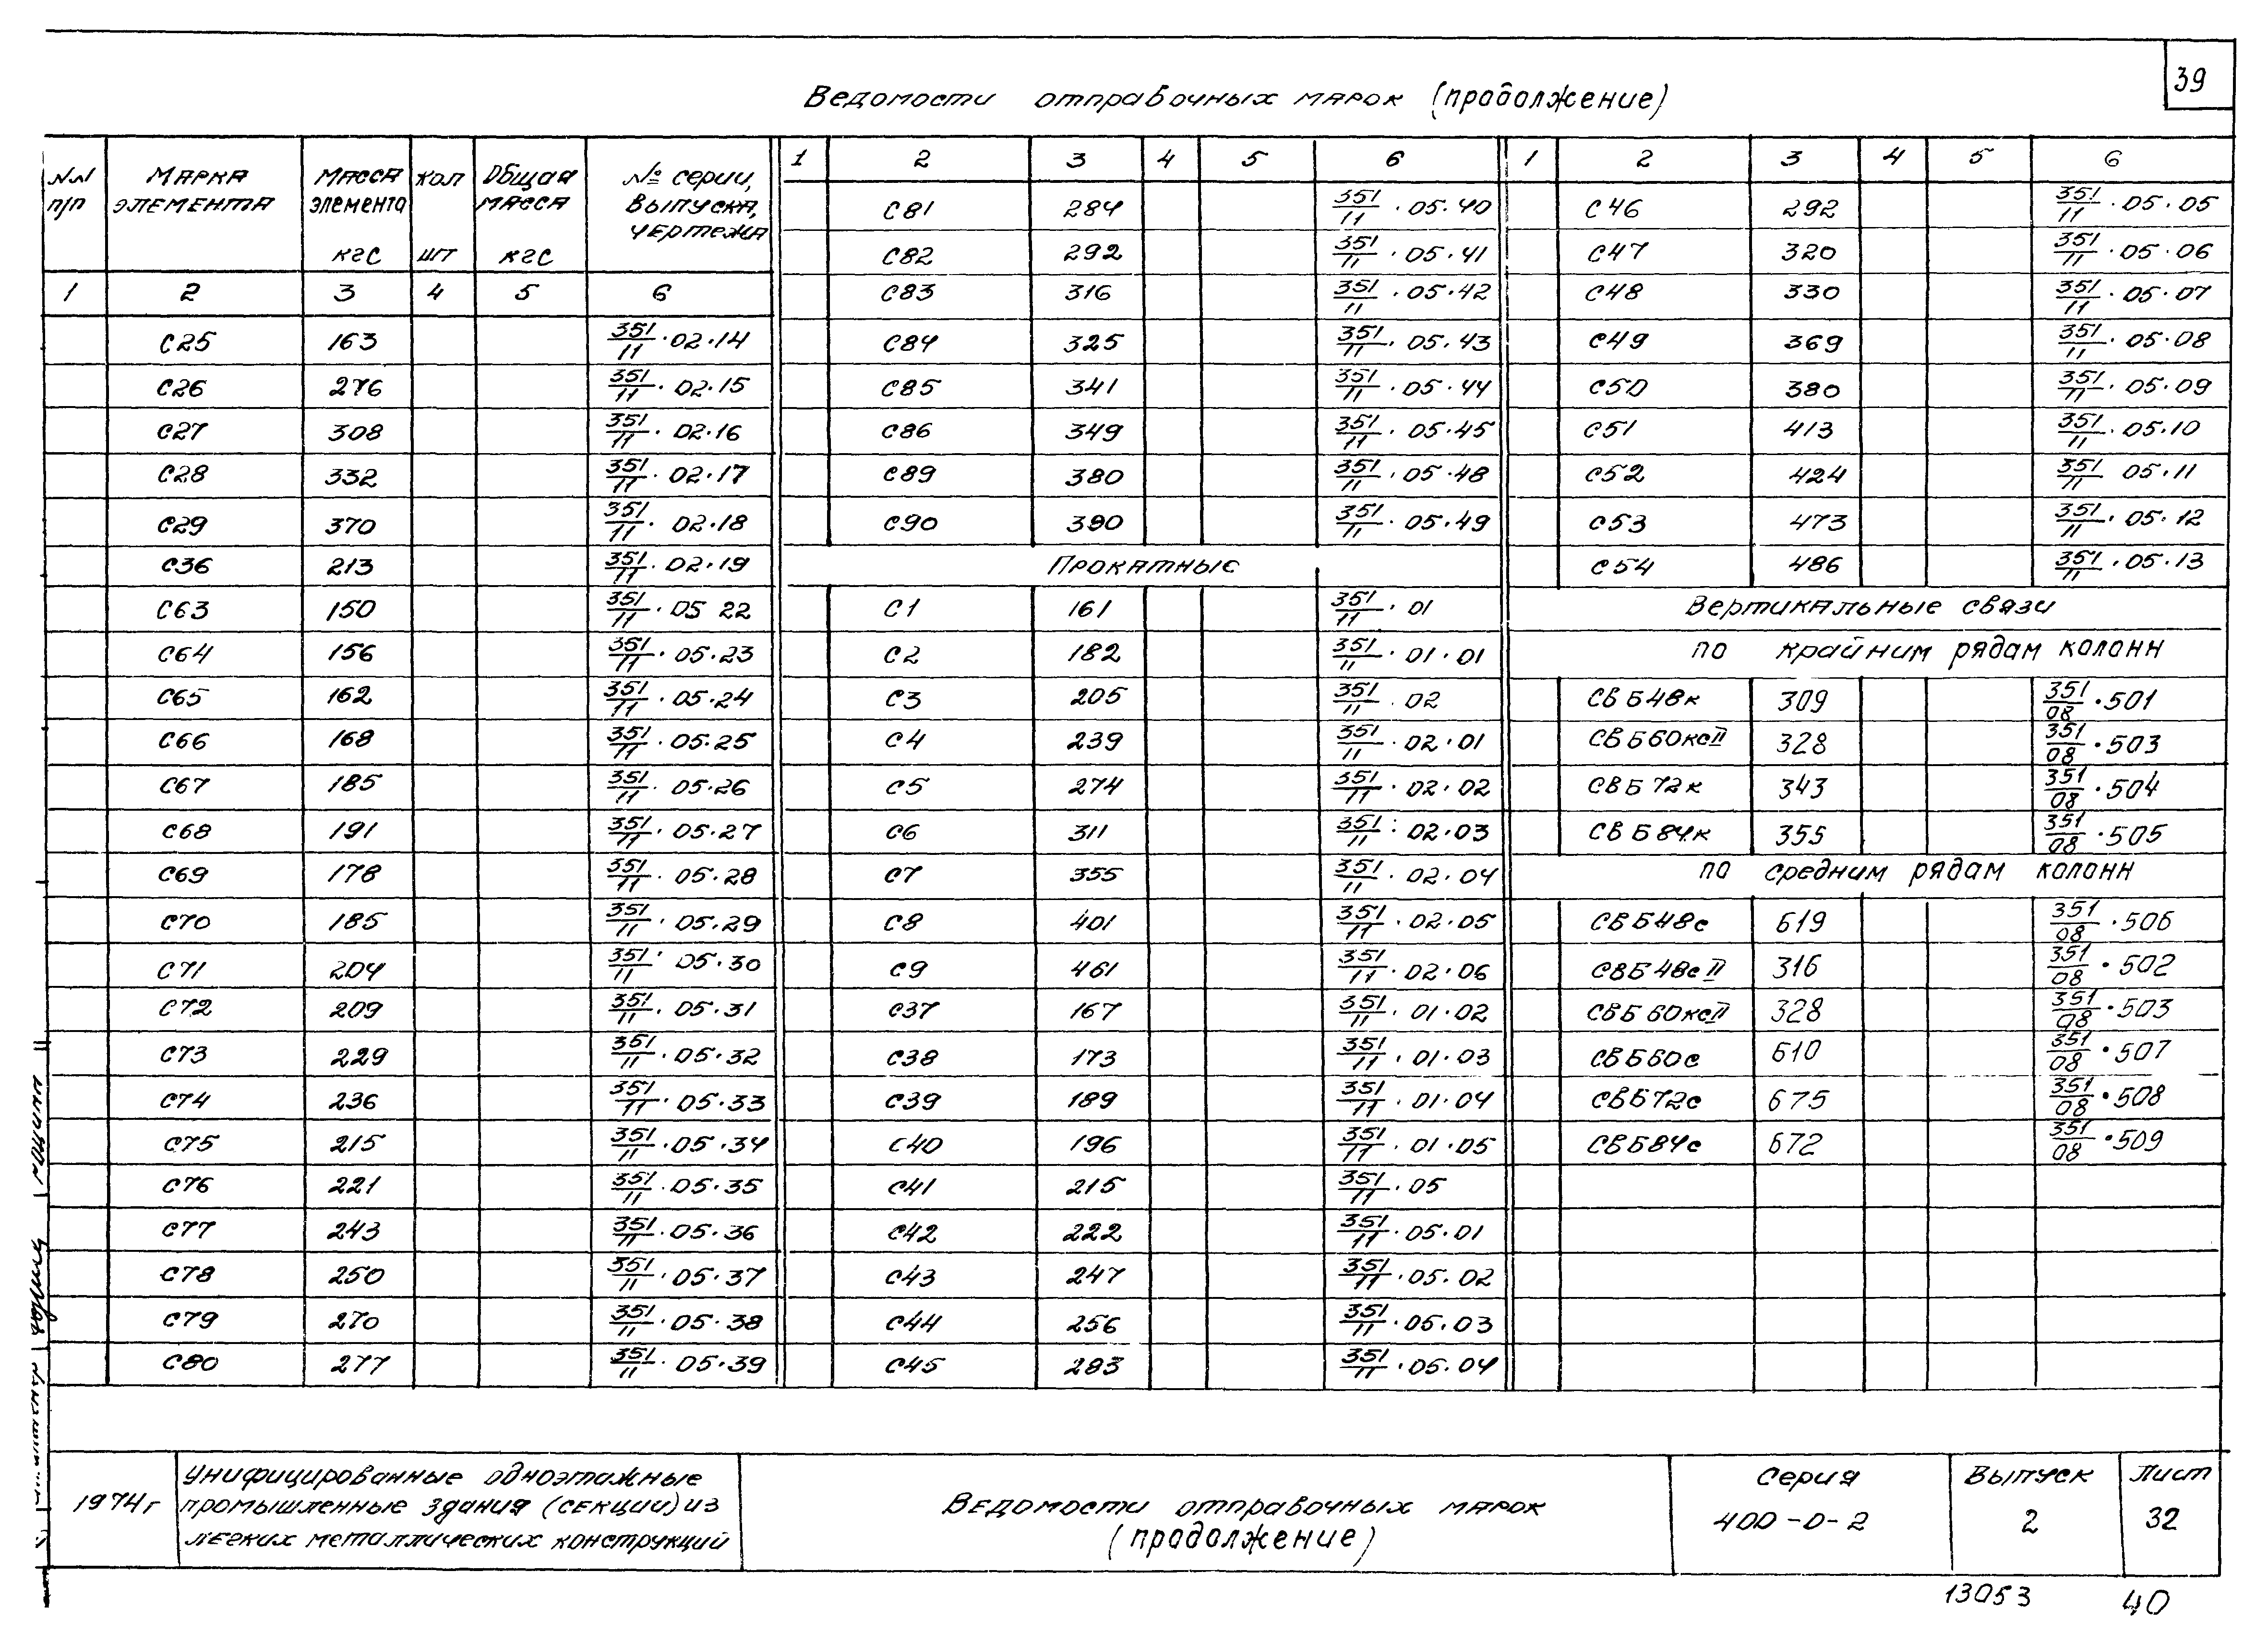 39
Ведомости отправочных марок (продолжение)
№№ п/п | Марка элемента | Масса элемента кгс | Кол шт | Общая масса кгс | № серии, выпуска, чертежа
1 | 2 | 3 | 4 | 5 | 6
С25 | 163 | 351/11 · 02·14
С26 | 276 | 351/11 · 02·15
С27 | 308 | 351/11 · 02·16
С28 | 332 | 351/11 · 02·17
С29 | 370 | 351/11 · 02·18
С36 | 213 | 351/11 · 02·19
С63 | 150 | 351/11 · 05 22
С64 | 156 | 351/11 · 05·23
С65 | 162 | 351/11 · 05·24
С66 | 168 | 351/11 · 05·25
С67 | 185 | 351/11 · 05·26
С68 | 191 | 351/11 · 05·27
С69 | 178 | 351/11 · 05·28
С70 | 185 | 351/11 · 05·29
С71 | 204 | 351/11 · 05·30
С72 | 209 | 351/11 · 05·31
С73 | 229 | 351/11 · 05·32
С74 | 236 | 351/11 · 05·33
С75 | 215 | 351/11 · 05·34
С76 | 221 | 351/11 · 05·35
С77 | 243 | 351/11 · 05·36
С78 | 250 | 351/11 · 05·37
С79 | 270 | 351/11 · 05·38
С80 | 277 | 351/11 · 05·39
1 | 2 | 3 | 4 | 5 | 6
С81 | 284 | 351/11 · 05·40
С82 | 292 | 351/11 · 05·41
С83 | 316 | 351/11 · 05·42
С84 | 325 | 351/11 · 05·43
С85 | 341 | 351/11 · 05·44
С86 | 349 | 351/11 · 05·45
С89 | 380 | 351/11 · 05·48
С90 | 390 | 351/11 · 05·49
Прокатные
С1 | 161 | 351/11 · 01
С2 | 182 | 351/11 · 01·01
С3 | 205 | 351/11 · 02
С4 | 239 | 351/11 · 02·01
С5 | 274 | 351/11 · 02·02
С6 | 311 | 351/11 · 02·03
С7 | 355 | 351/11 · 02·04
С8 | 401 | 351/11 · 02·05
С9 | 461 | 351/11 · 02·06
С37 | 167 | 351/11 · 01·02
С38 | 173 | 351/11 · 01·03
С39 | 189 | 351/11 · 01·04
С40 | 196 | 351/11 · 01·05
С41 | 215 | 351/11 · 05
С42 | 222 | 351/11 · 05·01
С43 | 247 | 351/11 · 05·02
С44 | 256 | 351/11 · 05·03
С45 | 283 | 351/11 · 05·04
1 | 2 | 3 | 4 | 5 | 6
С46 | 292 | 351/11 · 05·05
С47 | 320 | 351/11 · 05·06
С48 | 330 | 351/11 · 05·07
С49 | 369 | 351/11 · 05·08
С50 | 380 | 351/11 · 05·09
С51 | 413 | 351/11 · 05·10
С52 | 424 | 351/11 05·11
С53 | 473 | 351/11 · 05·12
С54 | 486 | 351/11 · 05·13
Вертикальные связи
по крайним рядам колонн
СВБ48к | 309 | 351/08 ·501
СВБ60ксII | 328 | 351/08 ·503
СВБ72к | 343 | 351/08 ·504
СВБ84к | 355 | 351/08 ·505
по средним рядам колонн
СВБ48с | 619 | 351/08 ·506
СВБ48сII | 316 | 351/08 ·502
СВБ60ксII | 328 | 351/08 ·503
СВБ60с | 610 | 351/08 ·507
СВБ72с | 675 | 351/08 ·508
СВБ84с | 672 | 351/08 ·509
1974г
Унифицированные одноэтажные
промышленные здания (секции) из
легких металлических конструкций
Ведомости отправочных марок
(продолжение)
Серия
400-0-2
Выпуск
2
Лист
32
13053
40